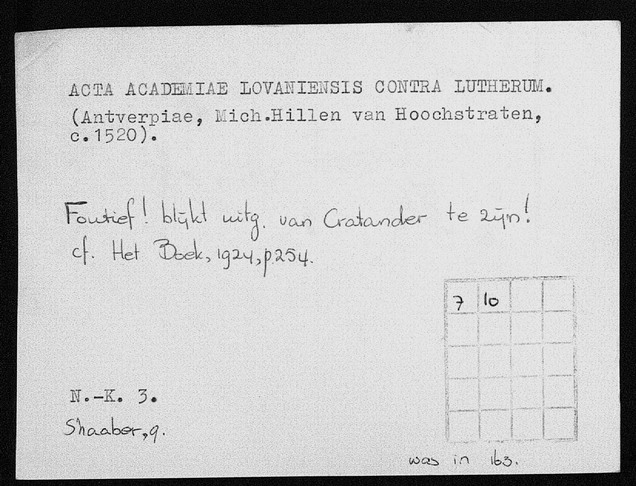 ACTA ACADEMIAE LOVANIENSIS CONTRA LUTHERUM.
(Antverpiae, Mich.Hillen van Hoochstraten,
c.1520).
Foutief! blijkt uitg. van Cratander te zijn!
cf. Het Boek, 1924, p.254.
7 10
N.-K. 3.
Shaaber, 9.
was in 163.